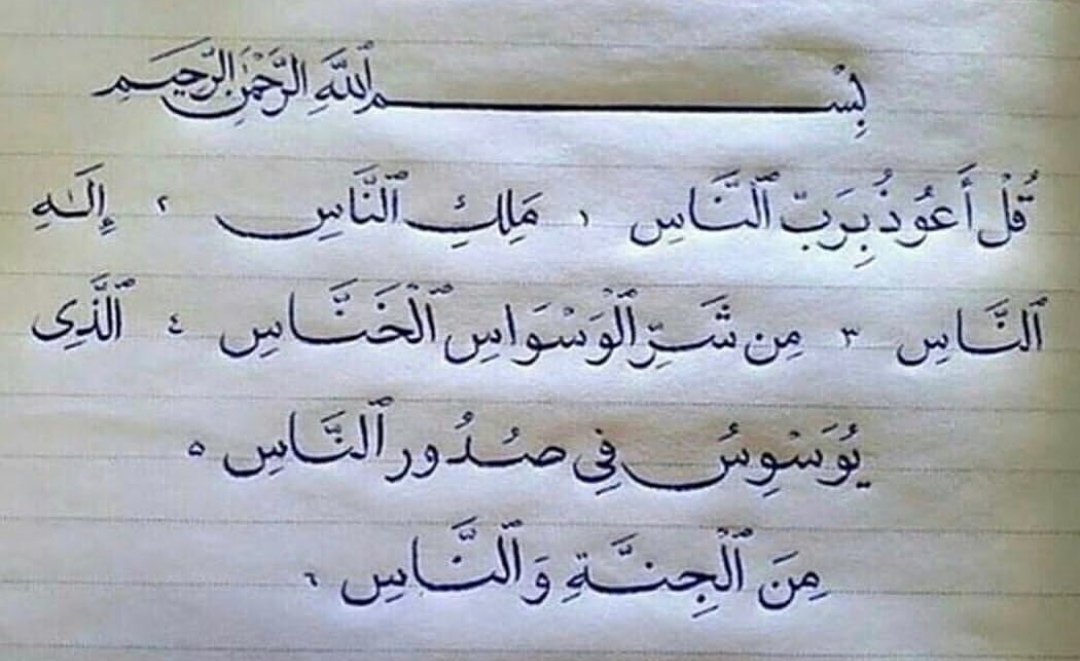 بِسْمِ ٱللَّهِ الرَّحْمَٰنِ الرَّحِيمِ
قُلْ أَعُوذُ بِرَبِّ ٱلنَّاسِ ١ مَلِكِ ٱلنَّاسِ ٢ إِلَٰهِ
ٱلنَّاسِ ٣ مِن شَرِّ ٱلْوَسْوَاسِ ٱلْخَنَّاسِ ٤ ٱلَّذِى
يُوَسْوِسُ فِى صُدُورِ ٱلنَّاسِ ٥
مِنَ ٱلْجِنَّةِ وَٱلنَّاسِ ٦